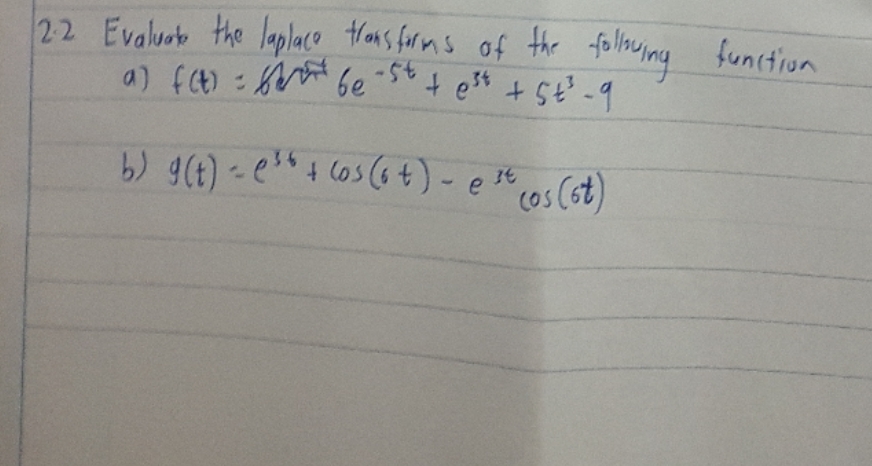 2.2 Evaluate the laplace transforms of the following function
a) f(t) = 6e^-5t + e^3t + 5t^3 - 9
b) g(t) = e^3t + cos(6t) - e^3t cos(6t)